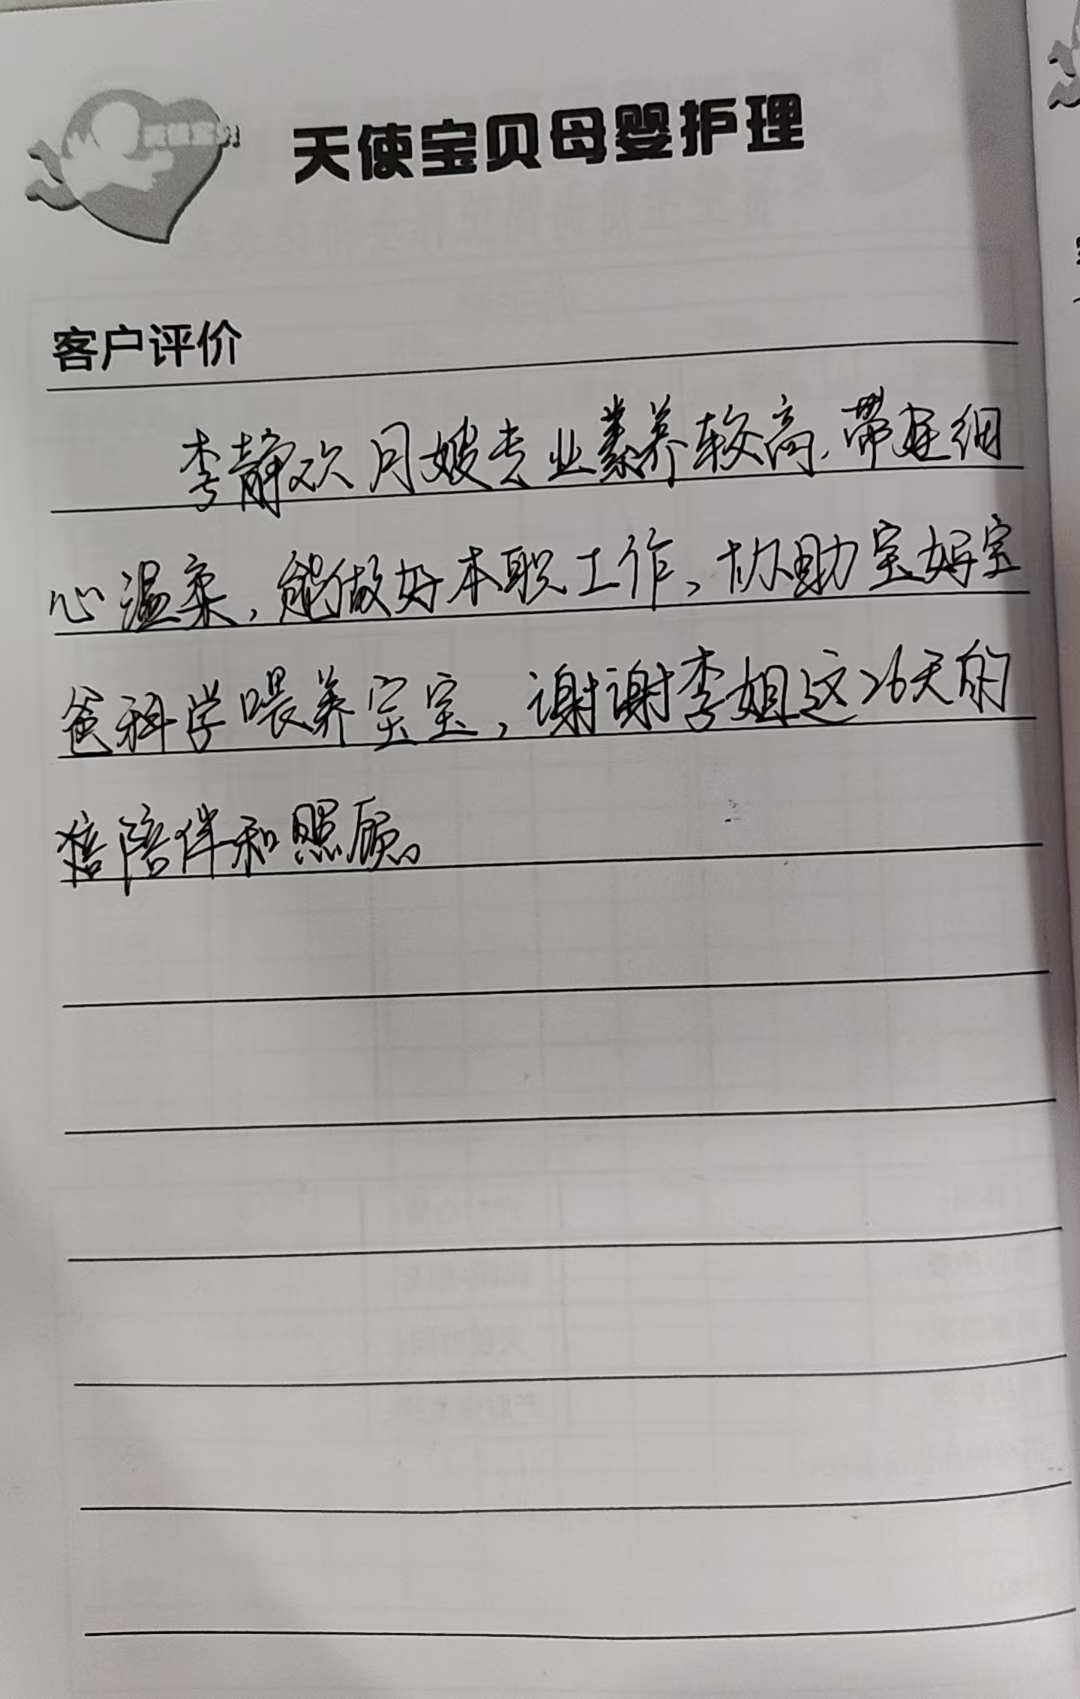 天使宝贝
天使宝贝母婴护理
客户评价
李静欢月嫂专业素养较高,带娃细
心温柔,能做好本职工作,协助宝妈宝
爸科学喂养宝宝,谢谢李姐这26天的
陪伴和照顾。